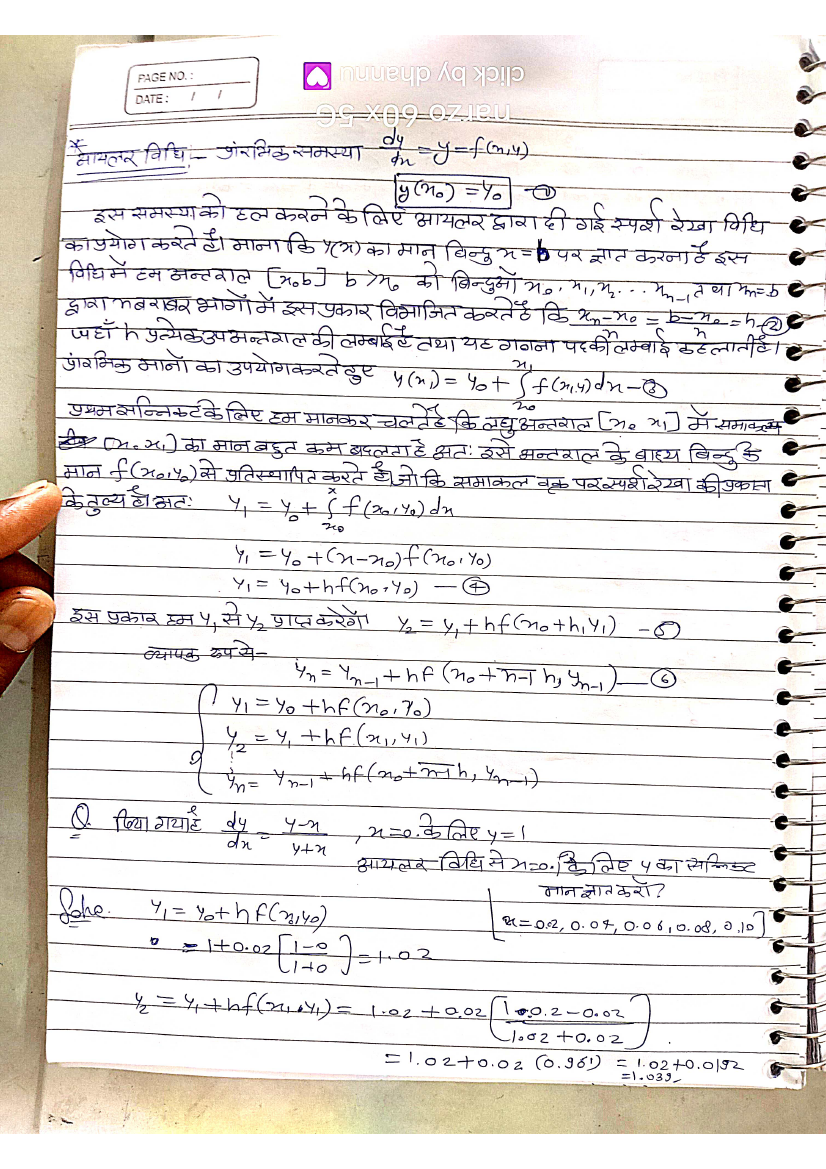 PAGE NO. :
DATE : / /
click by dhannu
narzo 60x 5G
* आयलर विधि :- प्रांरभिक समस्या dy/dx = y = f(x,y)
y(x₀) = y₀ — ①
इस समस्या को हल करने के लिए आयलर द्वारा दी गई स्पर्श रेखा विधि
का प्रयोग करते है। माना कि y(x) का मान बिन्दु x = b पर ज्ञात करना है इस
विधि में हम अन्तराल [x₀ b] b > x₀ को बिन्दुओं x₀, x₁, x₂ ... xₙ₋₁ तथा xₙ = b
द्वारा n बराबर भागों में इस प्रकार विभाजित करते है कि (xₙ - x₀)/n = (b - x₀)/n = h - ②
जहाँ h प्रत्येक उपअन्तराल की लम्बाई है तथा यह गणना पद की लम्बाई कहलाती है।
प्रांरभिक मानों का उपयोग करते हुए y(x₁) = y₀ + ∫ₓ₀ˣ¹ f(x,y) dx - ③
प्रथम सन्निकट के लिए हम मानकर चलते है कि लघु अन्तराल [x₀ x₁] में समाकल्य
[x₀ x₁] का मान बहुत कम बदलता है अतः इसे अन्तराल के बाह्य बिन्दु के
मान f(x₀,y₀) से प्रतिस्थापित करते है। जो कि समाकल वक्र पर स्पर्श रेखा की
के तुल्य है। अतः y₁ = y₀ + ∫ₓ₀ˣ f(x₀,y₀) dx
y₁ = y₀ + (x - x₀) f(x₀, y₀)
y₁ = y₀ + hf(x₀, y₀) — ④
इस प्रकार हम y₁ से y₂ प्राप्त करेगें। y₂ = y₁ + hf(x₀ + h, y₁) - ⑤
व्यापक रूप से-
yₙ = yₙ₋₁ + hf (x₀ + n-1 h, yₙ₋₁) — ⑥
y₁ = y₀ + hf(x₀, y₀)
y₂ = y₁ + hf(x₁, y₁)
yₙ = yₙ₋₁ + hf(x₀ + n-1 h, yₙ₋₁)
Q. दिया गया है dy/dx = (y-x)/(y+x) , x = 0. के लिए y = 1
आयलर विधि से x = 0.1 के लिए y का सन्निकट
मान ज्ञात करो?
Soln. y₁ = y₀ + hf(x₀,y₀)
x = 0.2, 0.04, 0.06, 0.08, 0.10]
= 1 + 0.02 [(1-0)/(1+0)] = 1.02
y₂ = y₁ + hf(x₁, y₁) = 1.02 + 0.02 [(1.0.2 - 0.02)/(1.02 + 0.02)]
= 1.02 + 0.02 (0.961) = 1.02 + 0.0192
= 1.039